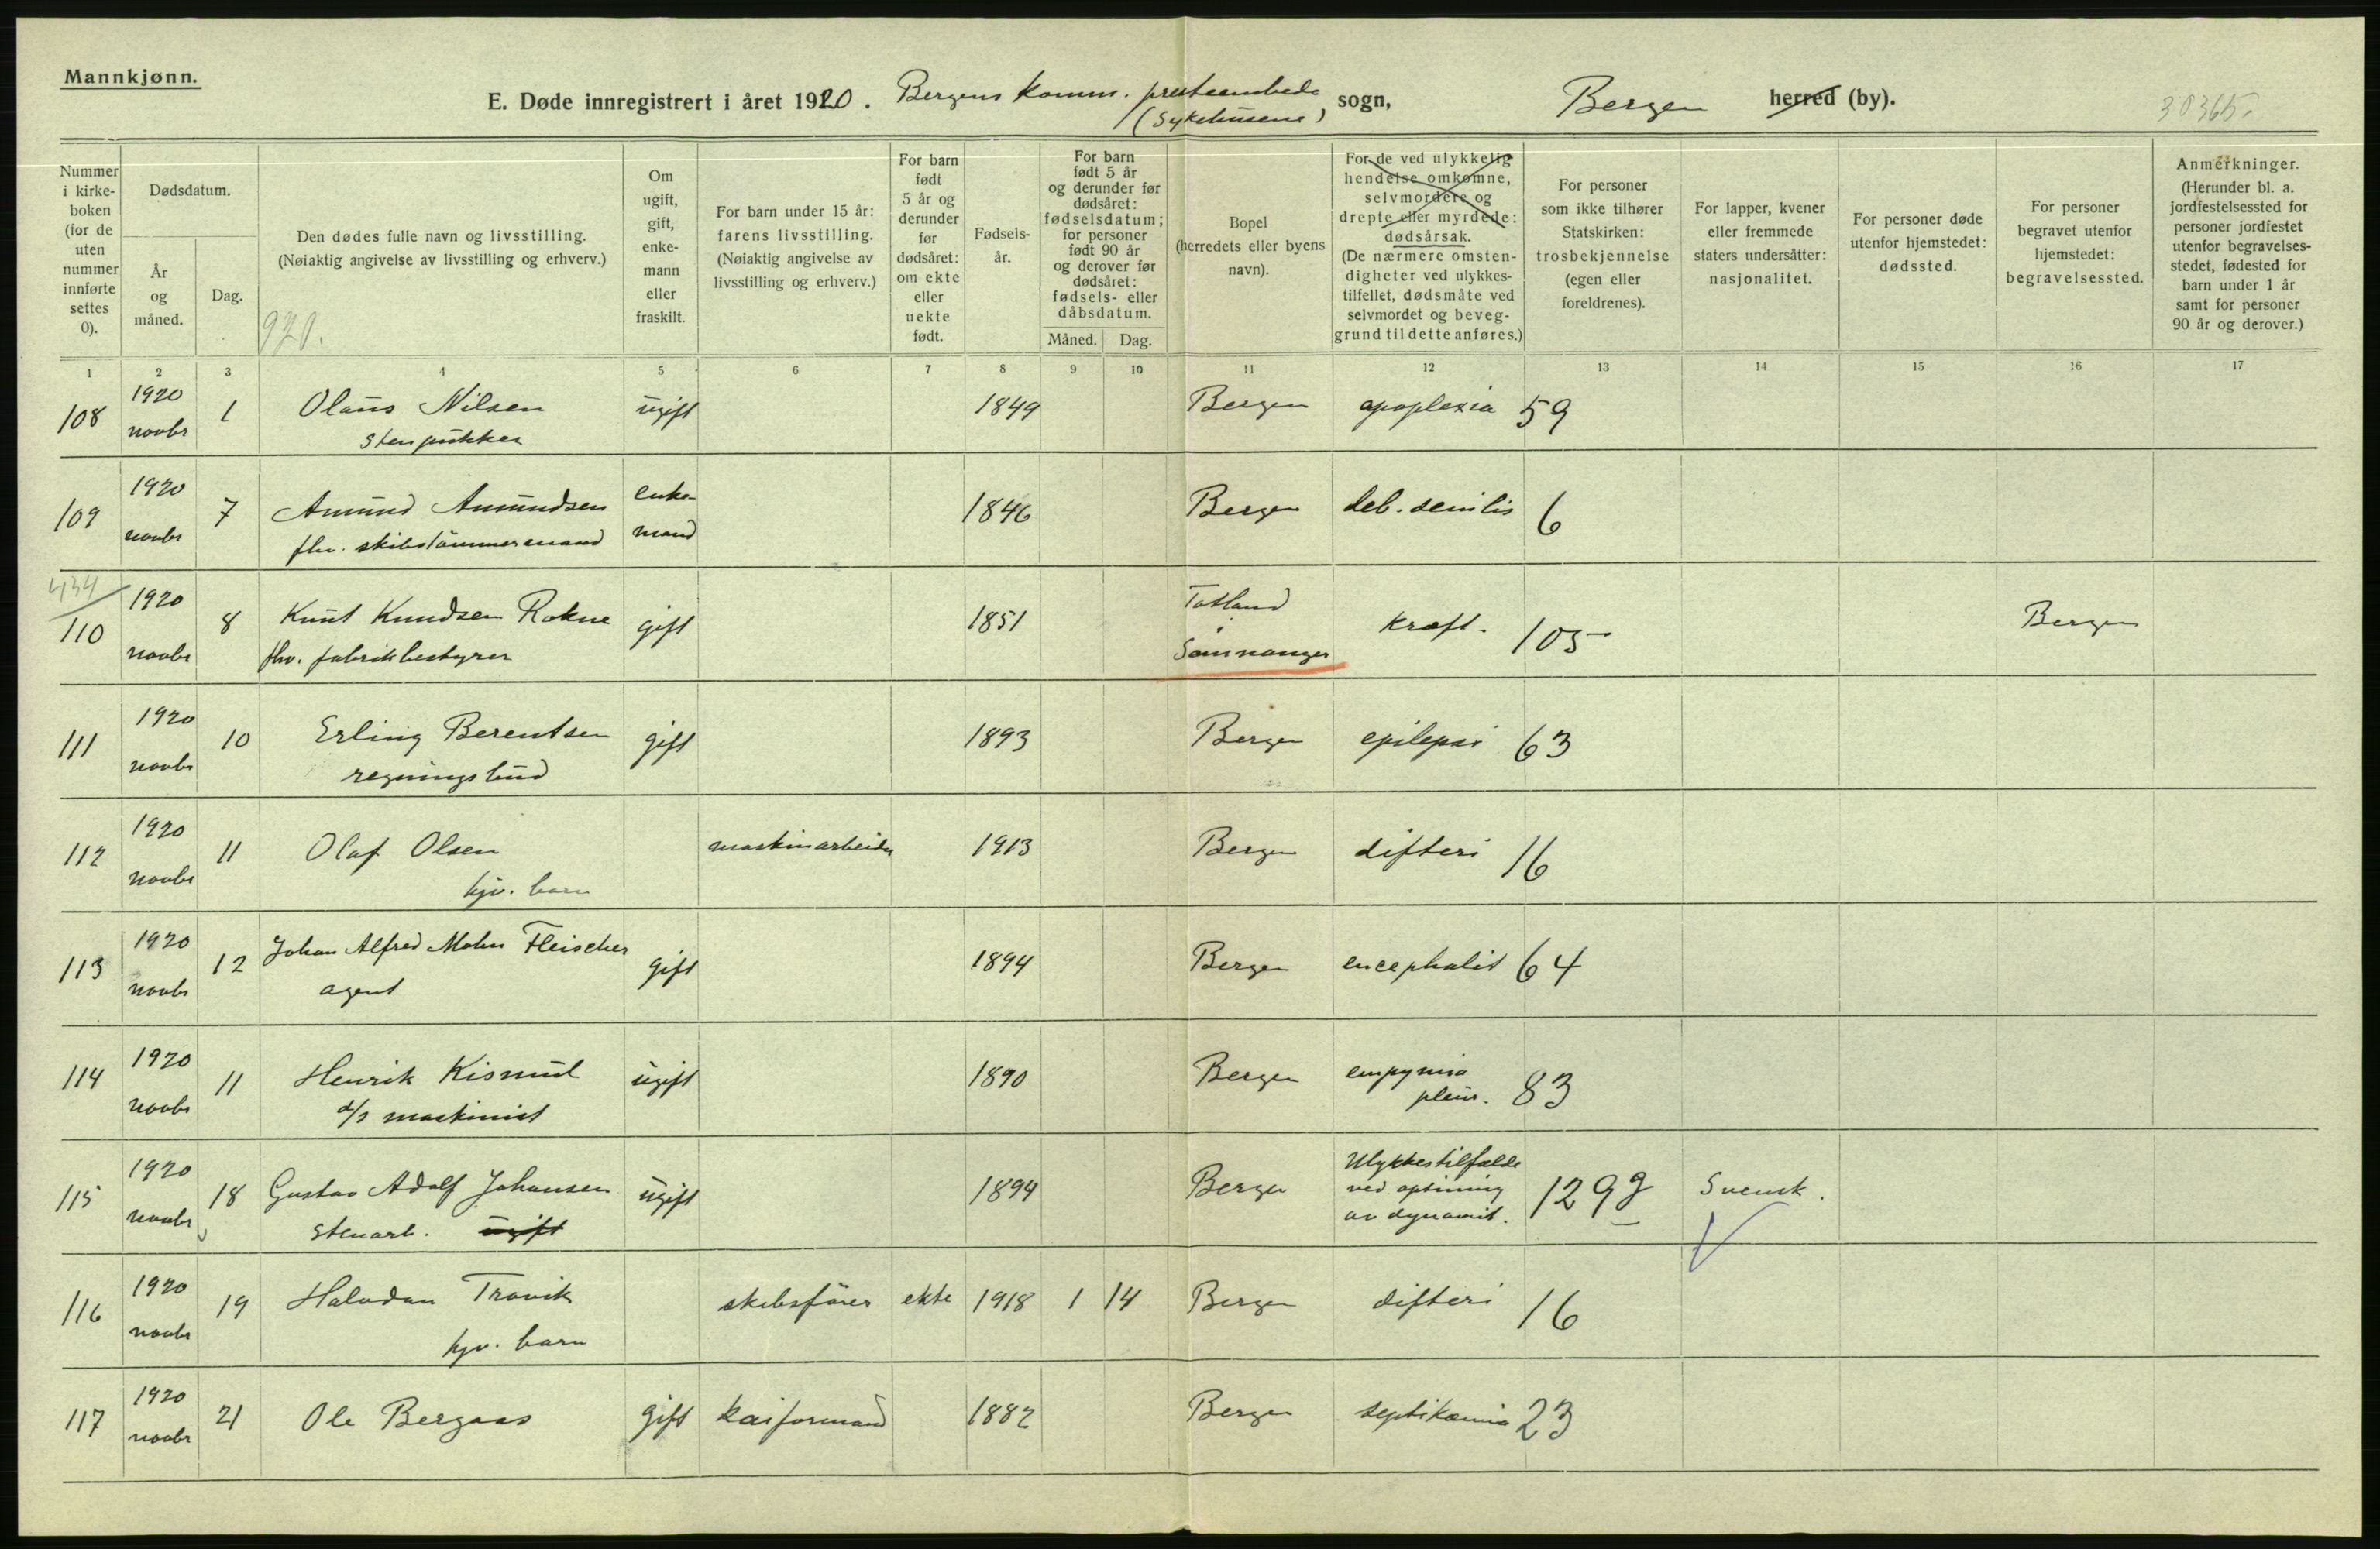 Mannkjønn.
E. Døde innregistrert i året 1920. Bergens komm. presteembede sogn, Bergen herred (by). 30365.
(Sykehusene)
Nummer i kirkeboken (for de uten nummer innførte settes 0).
Dødsdatum.
År og måned.
Dag.
Den dødes fulle navn og livsstilling.
(Nøiaktig angivelse av livsstilling og erhverv.)
920.
Om ugift, gift, enkemann eller fraskilt.
For barn under 15 år: farens livsstilling.
(Nøiaktig angivelse av livsstilling og erhverv.)
For barn født 5 år og derunder før dødsåret: om ekte eller uekte født.
Fødselsår.
For barn født 5 år og derunder før dødsåret: fødselsdatum; for personer født 90 år og derover før dødsåret: fødsels- eller dåbsdatum.
Måned. Dag.
Bopel (herredets eller byens navn).
For de ved ulykkelig hendelse omkomne, selvmordere og drepte eller myrdede: dødsårsak.
(De nærmere omstendigheter ved ulykkestilfellet, dødsmåte ved selvmordet og beveggrund til dette anføres.)
For personer som ikke tilhører Statskirken: trosbekjennelse (egen eller foreldrenes).
For lapper, kvener eller fremmede staters undersåtter: nasjonalitet.
For personer døde utenfor hjemstedet: dødssted.
For personer begravet utenfor hjemstedet: begravelsessted.
Anmerkninger.
(Herunder bl. a. jordfestelsessted for personer jordfestet utenfor begravelsesstedet, fødested for barn under 1 år samt for personer 90 år og derover.)
1 2 3 4 5 6 7 8 9 10 11 12 13 14 15 16 17
108 1920 novbr 1 Olaus Nilsen ugift 1849 Bergen apoplexia 59
stenpukker
109 1920 novbr 7 Amund Amundsen enkemand 1846 Bergen deb. senilis 6
fhv. skibstømmermand
434
110 1920 novbr 8 Knut Knudsen Rokne gift 1851 Tøsland Samnanger kræft. 105 Bergen
fhv. fabrikbestyrer
111 1920 novbr 10 Erling Berentsen gift 1893 Bergen epilepsi 63
regningsbud
112 1920 novbr 11 Olaf Olsen maskinarbeider 1913 Bergen difteri 16
hjv. barn
113 1920 novbr 12 Johan Alfred Mohn Fleischer gift 1894 Bergen encephalit 64
agent
114 1920 novbr 11 Henrik Kismul ugift 1890 Bergen empyema pleur. 83
d/s maskinist
115 1920 novbr 18 Gustav Adolf Johansen ugift 1894 Bergen Ulykkestilfælde ved optining av dynamit. 129g Svensk.
stenarb. ugift
116 1920 novbr 19 Halvdan Trovik skibsfører ekte 1918 1 14 Bergen difteri 16
hjv. barn
117 1920 novbr 21 Ole Bergaas gift kaiformand 1882 Bergen septikæmia 23